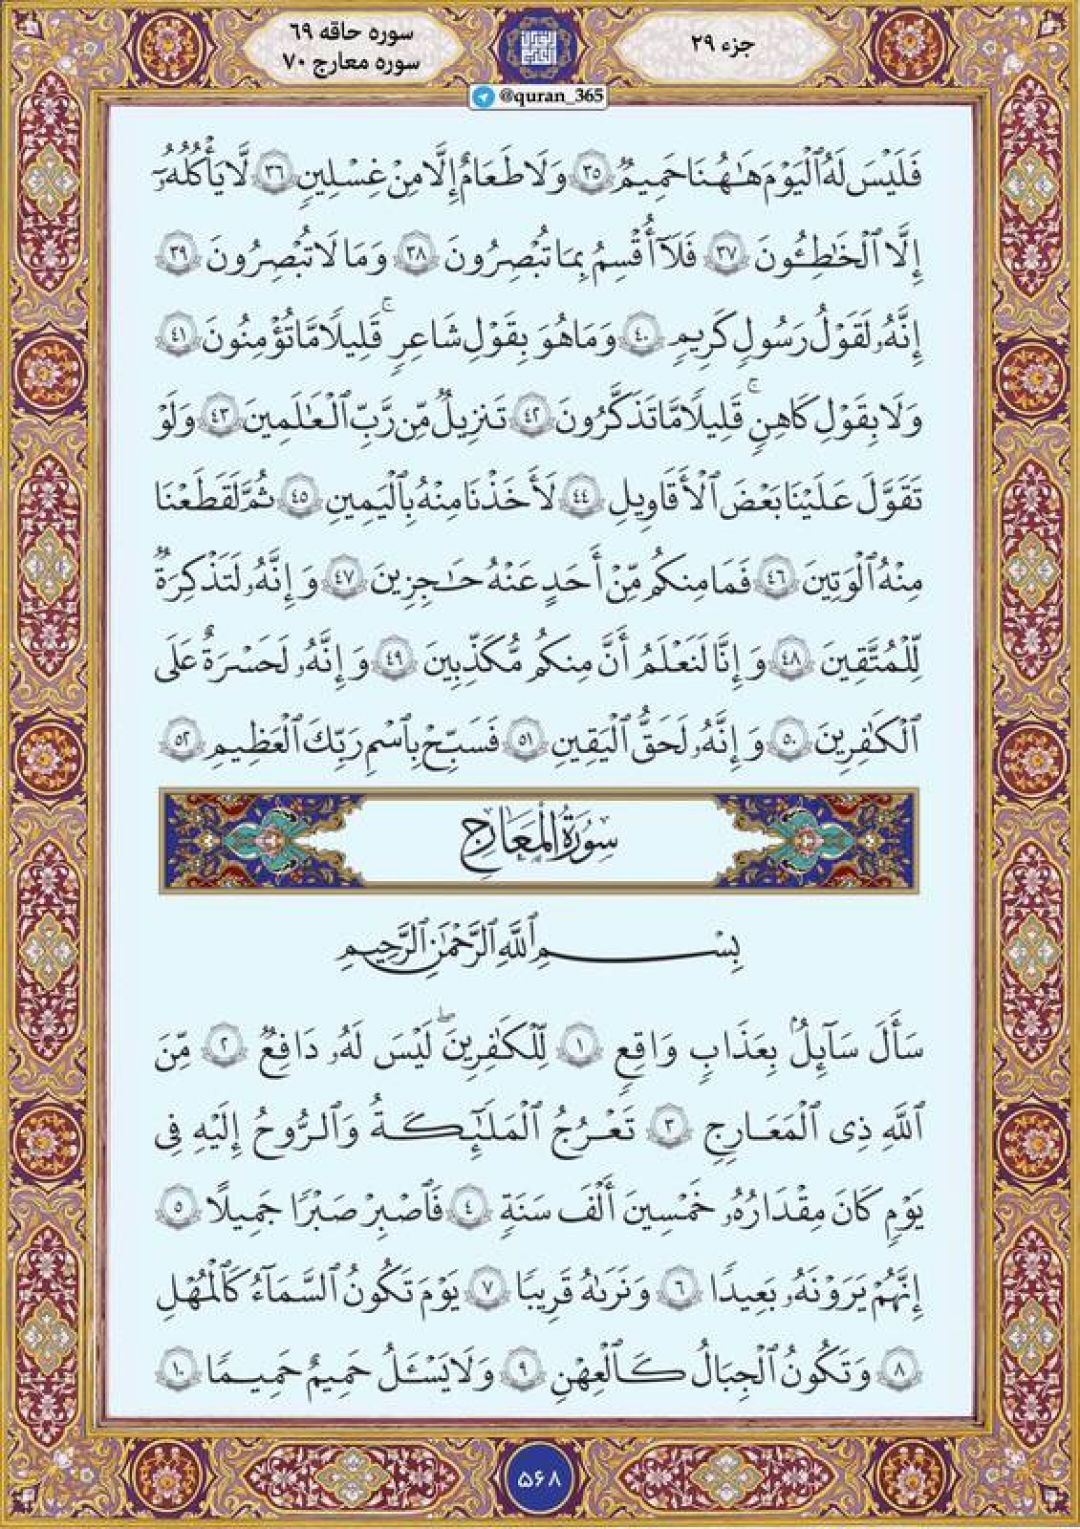 جزء ۲۹
سوره حاقه ۶۹
سوره معارج ۷۰
@quran_365
فَلَيْسَ لَهُ ٱلْيَوْمَ هَـٰهُنَا حَمِيمٌ ٣٥ وَلَا طَعَامٌ إِلَّا مِنْ غِسْلِينٍ ٣٦ لَّا يَأْكُلُهُۥٓ
إِلَّا ٱلْخَـٰطِـُٔونَ ٣٧ فَلَآ أُقْسِمُ بِمَا تُبْصِرُونَ ٣٨ وَمَا لَا تُبْصِرُونَ ٣٩
إِنَّهُۥ لَقَوْلُ رَسُولٍ كَرِيمٍ ٤٠ وَمَا هُوَ بِقَوْلِ شَاعِرٍ ۚ قَلِيلًا مَّا تُؤْمِنُونَ ٤١
وَلَا بِقَوْلِ كَاهِنٍ ۚ قَلِيلًا مَّا تَذَكَّرُونَ ٤٢ تَنزِيلٌ مِّن رَّبِّ ٱلْعَـٰلَمِينَ ٤٣ وَلَوْ
تَقَوَّلَ عَلَيْنَا بَعْضَ ٱلْأَقَاوِيلِ ٤٤ لَأَخَذْنَا مِنْهُ بِٱلْيَمِينِ ٤٥ ثُمَّ لَقَطَعْنَا
مِنْهُ ٱلْوَتِينَ ٤٦ فَمَا مِنكُم مِّنْ أَحَدٍ عَنْهُ حَـٰجِزِينَ ٤٧ وَإِنَّهُۥ لَتَذْكِرَةٌ
لِّلْمُتَّقِينَ ٤٨ وَإِنَّا لَنَعْلَمُ أَنَّ مِنكُم مُّكَذِّبِينَ ٤٩ وَإِنَّهُۥ لَحَسْرَةٌ عَلَى
ٱلْكَـٰفِرِينَ ٥٠ وَإِنَّهُۥ لَحَقُّ ٱلْيَقِينِ ٥١ فَسَبِّحْ بِٱسْمِ رَبِّكَ ٱلْعَظِيمِ ٥٢
سُورَةُ المَعَارِجِ
بِسْمِ ٱللَّهِ ٱلرَّحْمَـٰنِ ٱلرَّحِيمِ
سَأَلَ سَآئِلٌۢ بِعَذَابٍ وَاقِعٍ ١ لِّلْكَـٰفِرِينَ ۖ لَيْسَ لَهُۥ دَافِعٌ ٢ مِّنَ
ٱللَّهِ ذِى ٱلْمَعَارِجِ ٣ تَعْرُجُ ٱلْمَلَـٰٓئِكَةُ وَٱلرُّوحُ إِلَيْهِ فِى
يَوْمٍ كَانَ مِقْدَارُهُۥ خَمْسِينَ أَلْفَ سَنَةٍ ٤ فَٱصْبِرْ صَبْرًا جَمِيلًا ٥
إِنَّهُمْ يَرَوْنَهُۥ بَعِيدًا ٦ وَنَرَىٰهُ قَرِيبًا ٧ يَوْمَ تَكُونُ ٱلسَّمَآءُ كَٱلْمُهْلِ
٨ وَتَكُونُ ٱلْجِبَالُ كَٱلْعِهْنِ ٩ وَلَا يَسْـَٔلُ حَمِيمٌ حَمِيمًا ١٠
۵۶۸